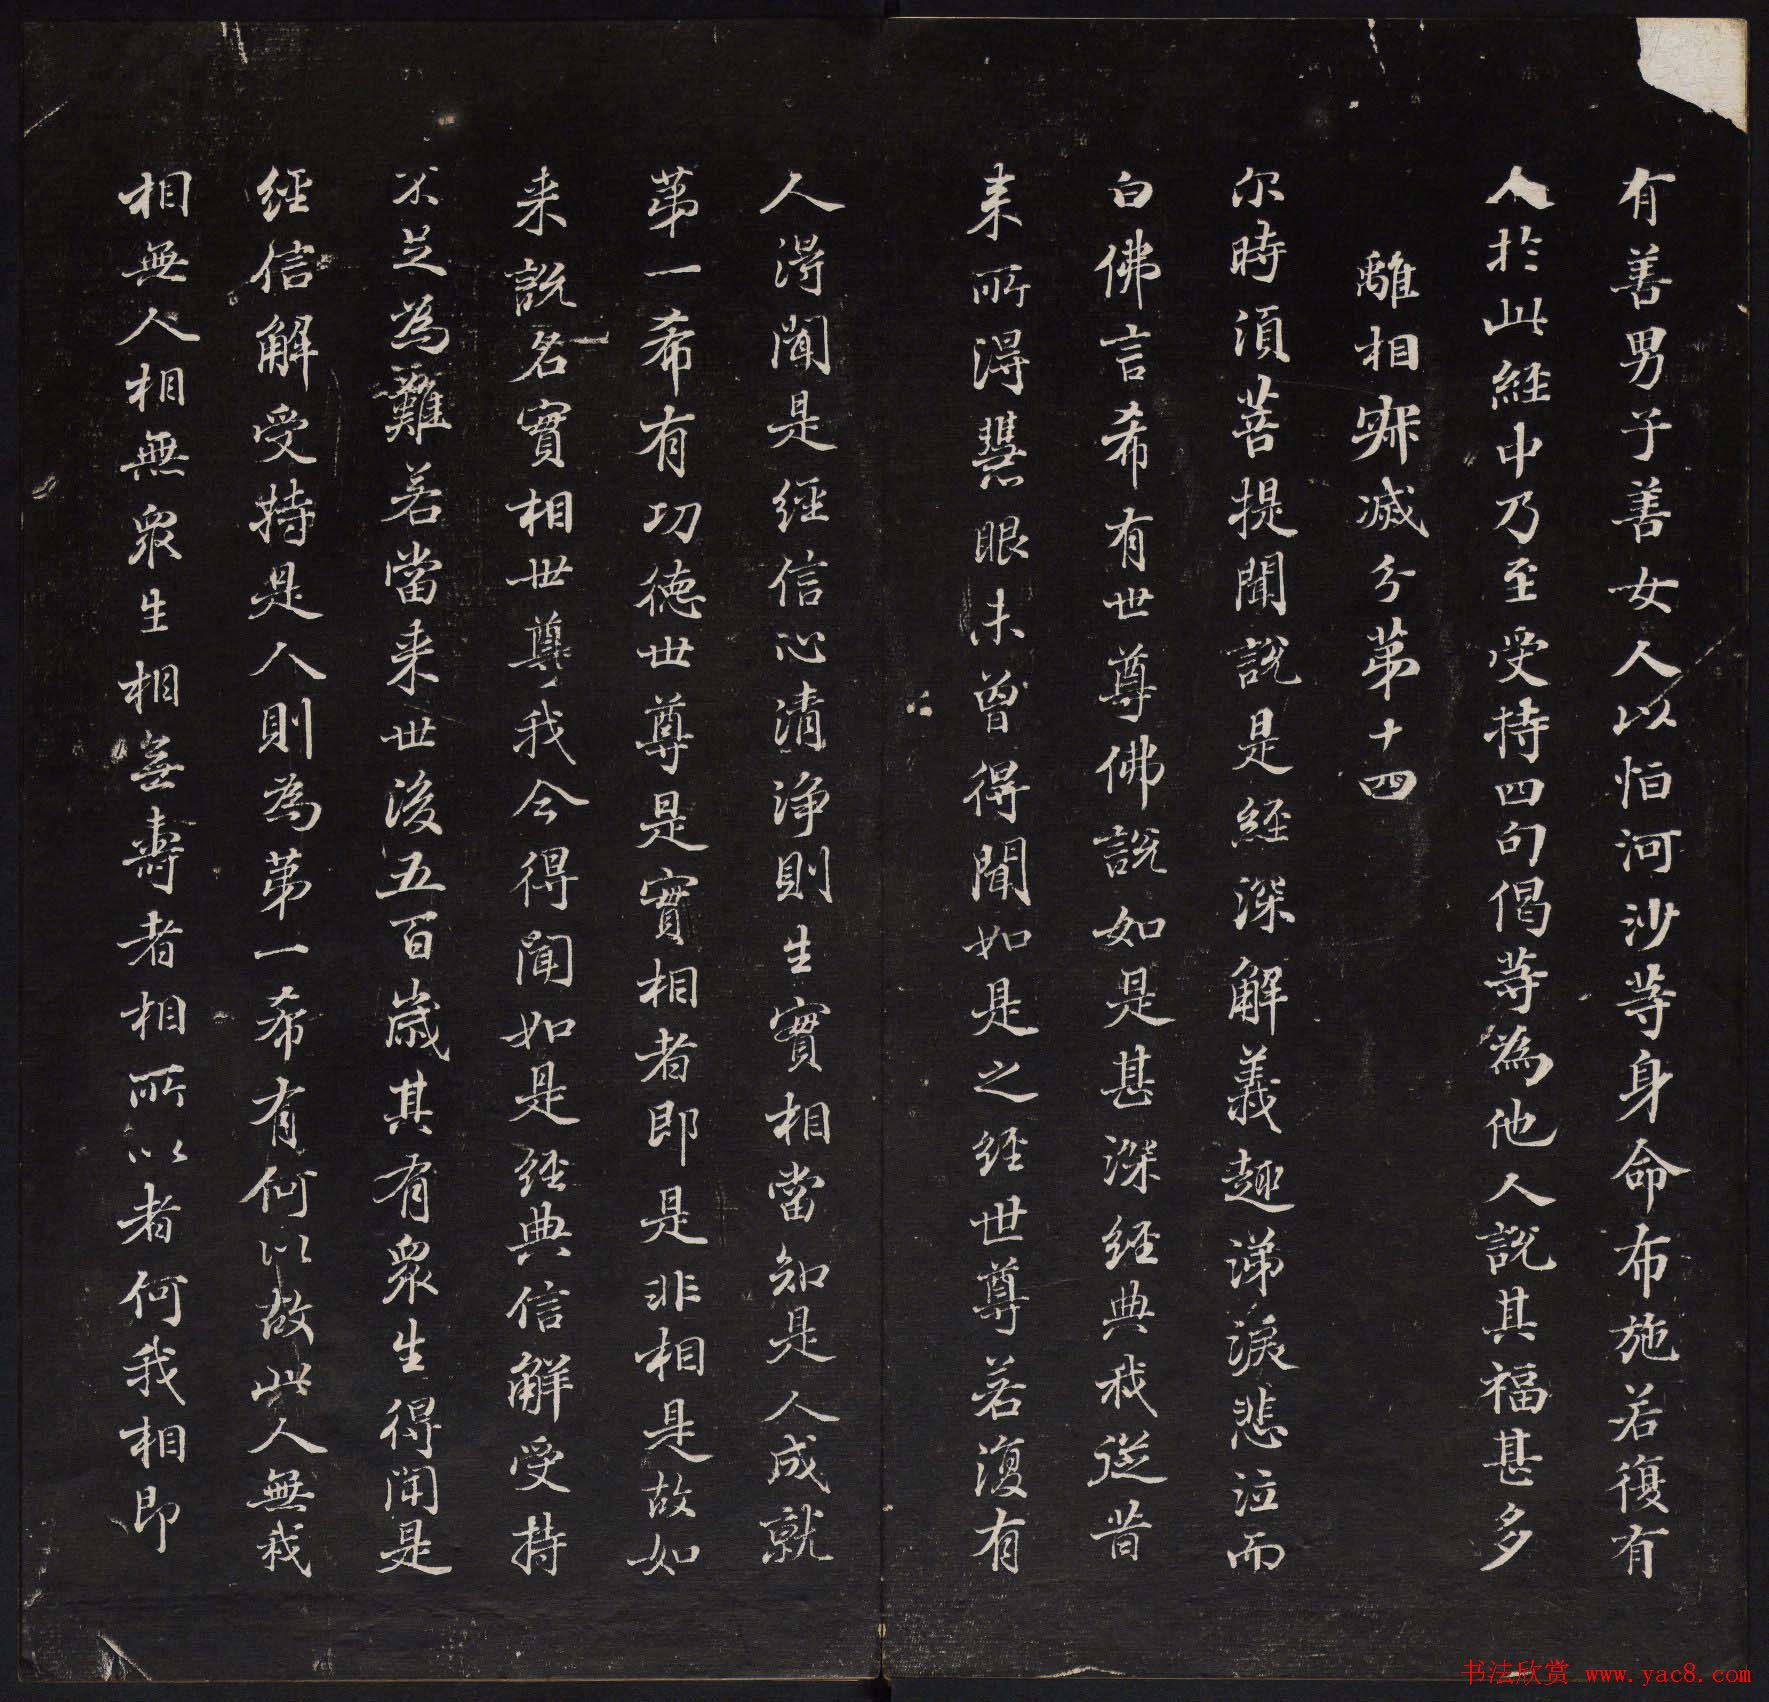 有善男子善女人以恒河沙等身命布施若復有
人於此經中乃至受持四句偈等為他人說其福甚多
離相寂滅分第十四
尔時須菩提聞說是經深解義趣涕淚悲泣而
白佛言希有世尊佛說如是甚深經典我從昔
来所得慧眼未曾得聞如是之經世尊若復有
人得聞是經信心清淨則生實相當知是人成就
第一希有功德世尊是實相者即是非相是故如
来說名實相世尊我今得聞如是經典信解受持
不足為難若當来世後五百歲其有眾生得聞是
經信解受持是人則為第一希有何以故此人無我
相無人相無眾生相無壽者相所以者何我相即
书法欣赏 www.yac8.com